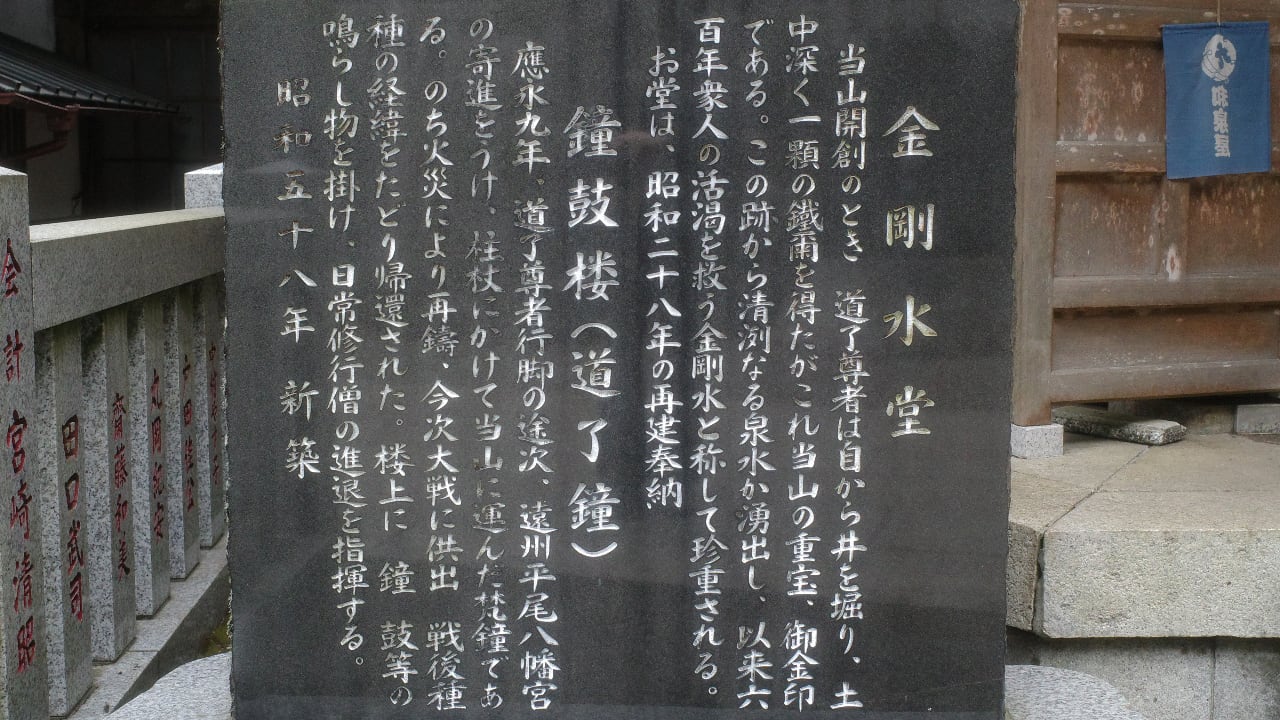 金剛水堂
当山開創のとき 道了尊者は自から井を堀り、土
中深く一顆の鐵爾を得たがこれ当山の重宝、御金印
である。この跡から清冽なる泉水か湧出し、以来六
百年衆人の活渇を救う金剛水と称して珍重される。
お堂は、昭和二十八年の再建奉納
鐘鼓楼(道了鐘)
應永九年、道了尊者行脚の途次、遠州平尾八幡宮
の寄進をうけ、柱杖にかけて当山に運んだ梵鐘であ
る。のち火災により再鑄、今次大戦に供出 戦後種
種の経緯をたどり帰還された。楼上に 鐘 鼓等の
鳴らし物を掛け、日常修行僧の進退を指揮する。
昭和五十八年 新築
会計 宮崎清昭
田口武司
齋藤和美